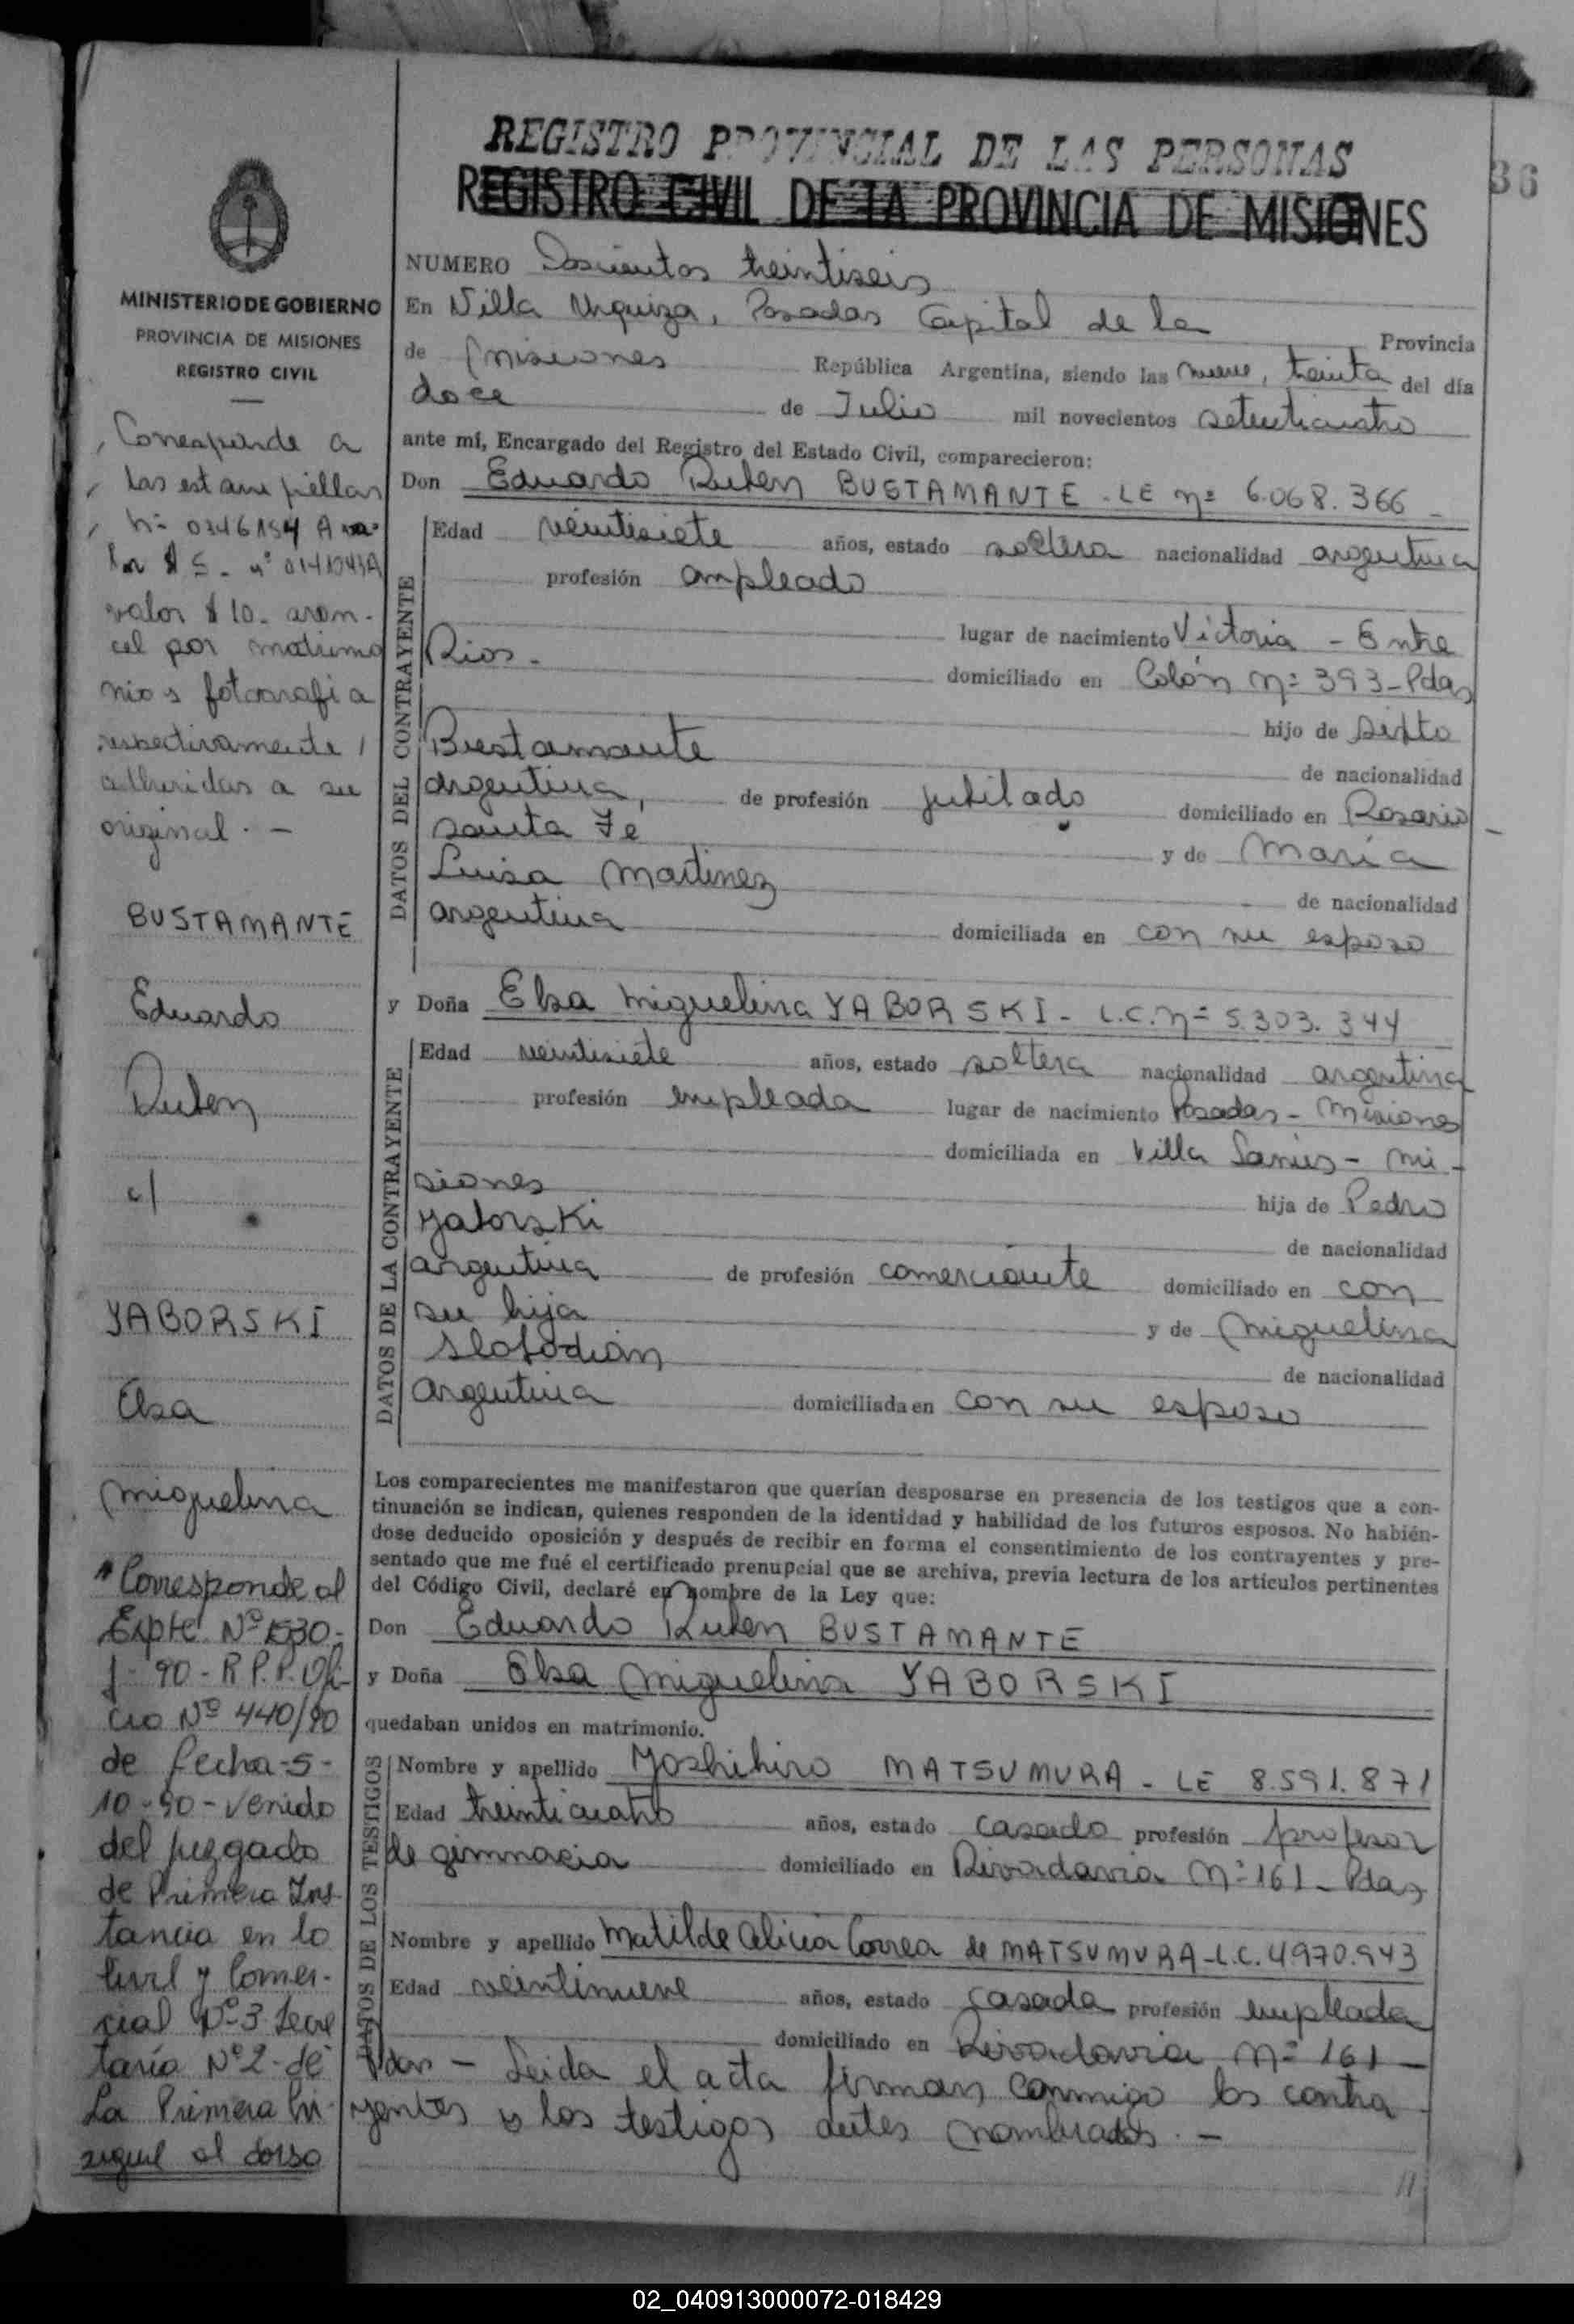 REGISTRO PROVINCIAL DE LAS PERSONAS
REGISTRO CIVIL DE LA PROVINCIA DE MISIONES
36
MINISTERIO DE GOBIERNO
PROVINCIA DE MISIONES
REGISTRO CIVIL
Corresponde a
las estampiellas
valor $ 10. aran-
cel por matrimo
nio s fotografia
respectivamente
adheridas a su
original. -
BUSTAMANTE
Eduardo
Ruben
c/
YABORSKI
Elsa
Miguelina
Corresponde al
Expte Nº 1530-
f- 90 - R.P.P. Ofi-
cio Nº 440/90
de fecha -5-
10-90- venido
del juzgado
de Primera Ins-
tancia en lo
Civil y Comer-
cial Nº 3 Secre
taría Nº 2- de
La Primera Cir-
sigue al dorso
NUMERO Doscientos treintiseis
En Villa Urquiza, Posadas Capital de la Provincia
de Misiones República Argentina, siendo las nueve, treinta del día
doce de Julio mil novecientos setenticuatro
ante mí, Encargado del Registro del Estado Civil, comparecieron:
Don Eduardo Ruben BUSTAMANTE - LE nº 6.068.366 -
DATOS DEL CONTRAYENTE
Edad veintisiete años, estado soltero nacionalidad argentina
profesión empleado
lugar de nacimiento Victoria - Entre
Rios. - domiciliado en Colón nº 393 - Pdas
hijo de Sixto
Bustamante de nacionalidad
argentina, de profesión jubilado domiciliado en Rosario -
Santa Fe y de María
Luisa Martinez de nacionalidad
argentina domiciliada en con su esposo
y Doña Elsa Miguelina YABORSKI - L.C. nº 5.303.344
DATOS DE LA CONTRAYENTE
Edad veintisiete años, estado soltera nacionalidad argentina
profesión empleada lugar de nacimiento Posadas - Misiones
domiciliada en Villa Lanús - Mi-
siones hija de Pedro
Yaborski de nacionalidad
argentina de profesión comerciante domiciliado en con
su hija y de Miguelina
Slobodian de nacionalidad
argentina domiciliada en con su esposo
Los comparecientes me manifestaron que querían desposarse en presencia de los testigos que a con-
tinuación se indican, quienes responden de la identidad y habilidad de los futuros esposos. No habién-
dose deducido oposición y después de recibir en forma el consentimiento de los contrayentes y pre-
sentado que me fué el certificado prenupcial que se archiva, previa lectura de los artículos pertinentes
del Código Civil, declaré en nombre de la Ley que:
Don Eduardo Ruben BUSTAMANTE
y Doña Elsa Miguelina YABORSKI
quedaban unidos en matrimonio.
DATOS DE LOS TESTIGOS
Nombre y apellido Yoshihiro MATSUMURA - LE 8.591.871
Edad treinticuatro años, estado casado profesión profesor
de gimnacia domiciliado en Rivadavia Nº 161 - Pdas
Nombre y apellido Matilde Alicia Correa de MATSUMURA - L.C. 4.970.943
Edad veintinueve años, estado casada profesión empleada
domiciliado en Rivadavia Nº 161 -
Pdas - Leida el acta firman conmigo los contra
yentes y los testigos antes nombrados. -
02_040913000072-018429